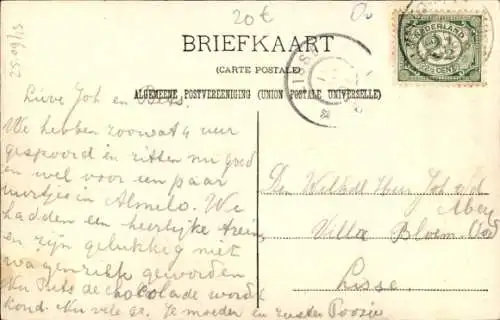 20€
25/09/15
BRIEFKAART
(CARTE POSTALE)
ALGEMEENE POSTVEREENIGING (UNION POSTALE UNIVERSELLE)
NEDERLAND
2½
Lieve Joh en Bets.
We hebben zoowat 4 uur
gespoord en zitten nu goed
en wel voor een paar
uurtjes in Almelo. We
hadden een heerlijke trein
en zijn gelukkig niet
wagenziek geworden
Nu Bets de chocolade wordt
koud. Nu vele gr. Je moeder en zuster Poosje
Den WelEd Heer Joh v/d
Aberg
Villa Bloem
Lisse.